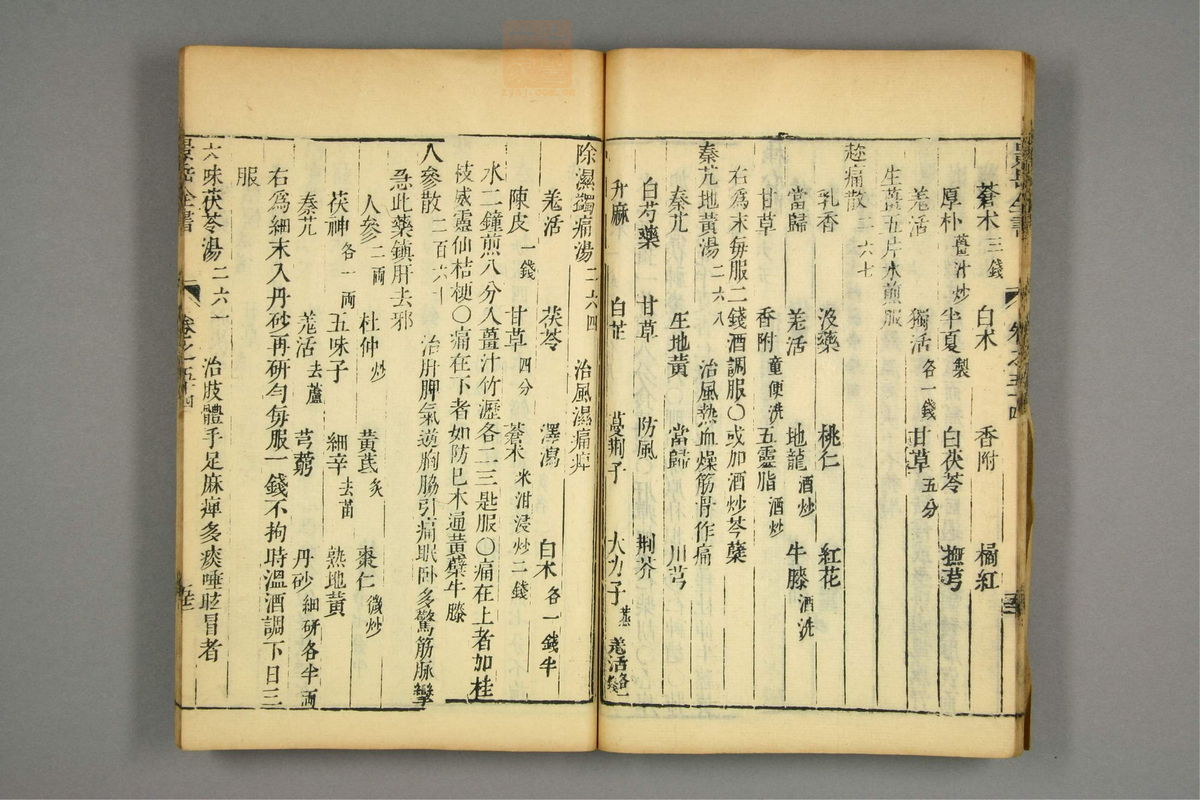 蒼朮三錢 白朮 香附 橘紅
厚朴薑汁炒 半夏製 白茯苓 撫芎
羗活 獨活各一錢 甘草五分
生薑五片水煎服
趂痛散二六七
乳香 沒藥 桃仁 紅花
當歸 羗活 地龍酒炒 牛膝酒洗
甘草 香附童便洗 五靈脂酒炒
右為末每服二錢酒調服〇或加酒炒芩蘗
秦艽地黃湯二六八 治風熱血燥筋骨作痛
秦艽 生地黃 當歸 川芎
白芍藥 甘草 防風 荆芥
升麻 白芷 蔓荆子 大力子蒸 羗活各一錢
除濕蠲痛湯二六四 治風濕痛痺
羗活 茯苓 澤瀉 白朮各一錢半
陳皮一錢 甘草四分 蒼朮米泔浸炒二錢
水二鐘煎八分入薑汁竹瀝各二三匙服〇痛在上者加桂
枝威靈仙桔梗〇痛在下者如防巳木通黃蘗牛膝
人參散二百六十 治肝脾氣逆胸脇引痛眠卧多驚筋脉攣
急此藥鎮肝去邪
人參二兩 杜仲炒 黃芪炙 棗仁微炒
茯神各一兩 五味子 細辛去苗 熟地黃
秦艽 羗活去蘆 芎藭 丹砂細研各半兩
右爲細末入丹砂再研勻每服一錢不拘時溫酒調下日三
服
六味茯苓湯二六一 治肢體手足麻痺多痰唾眩冒者
景岳全書 卷之五十四